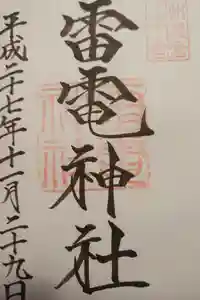 雷電神社
平成二十七年十一月二十九日